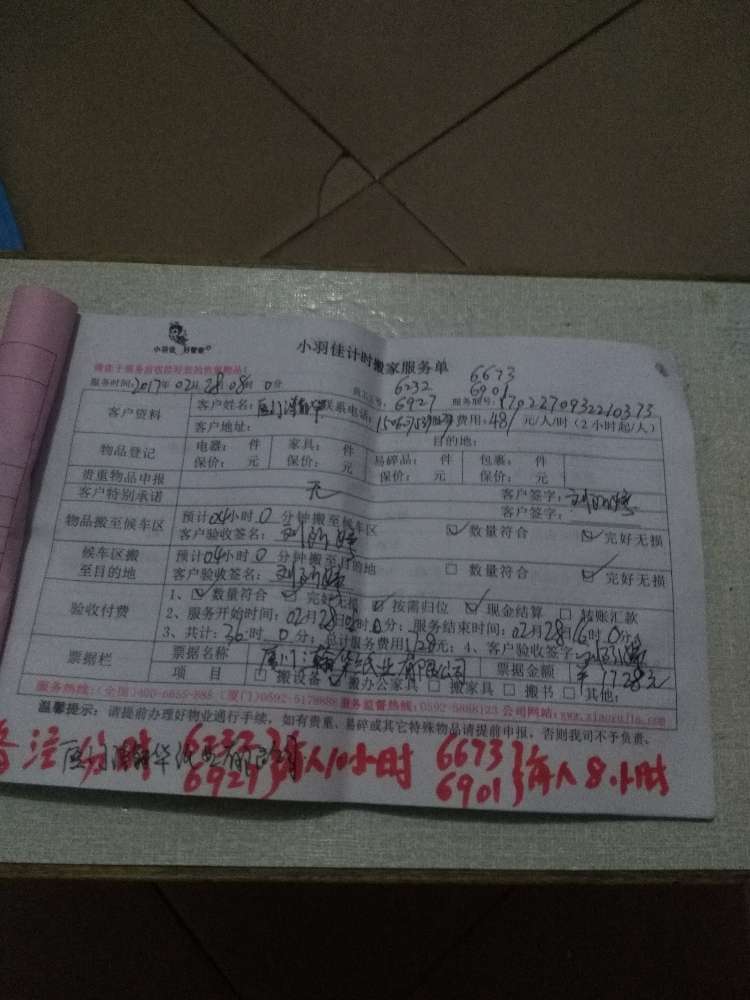 小羽佳 好管家
小羽佳计时搬家服务单
请在下服务前收捡好您的贵重物品!
6673
6232 6901
服务时间:2017年02月28日08时0分 6927 服务版号:1702270932210373
客户资料 客户姓名: 联系电话: 费用:48/元/人/时(2小时起/人)
客户地址: 目的地:
物品登记 电器: 件 家具: 件 易碎品: 件 包裹: 件
保价: 元 保价: 元 保价: 元 保价: 元
贵重物品申报 无 客户签字:
客户特别承诺 客户签字:
物品搬至候车区 预计04小时0分钟搬至候车区 数量符合 完好无损
客户验收签名:
候车区搬至目的地 预计04小时0分钟搬至目的地 数量符合 完好无损
客户验收签名:
验收付费 1、数量符合 完好无损 按需归位 现金结算 转账汇款
2、服务开始时间:02月28日08时0分;服务结束时间:02月28日16时0分;
3、共计:36时0分;总计服务费用1728元;4、客户验收签字:
票据栏 票据名称 厦门瀚华纸业有限公司 票据金额 ¥1728元
项目 搬设备 搬办公家具 搬家具 搬书 其他:
服务热线:(全国)400-6655-888 (厦门)0592-5179888 服务监督热线:0592-5888123 公司网站:www.xiaoyujia.com
温馨提示:请提前办理好物业通行手续,如有贵重、易碎或其它特殊物品请提前申报,否则我司不予负责。
备注 分时 6232 6927}每人10小时 6673 6901}每人8小时